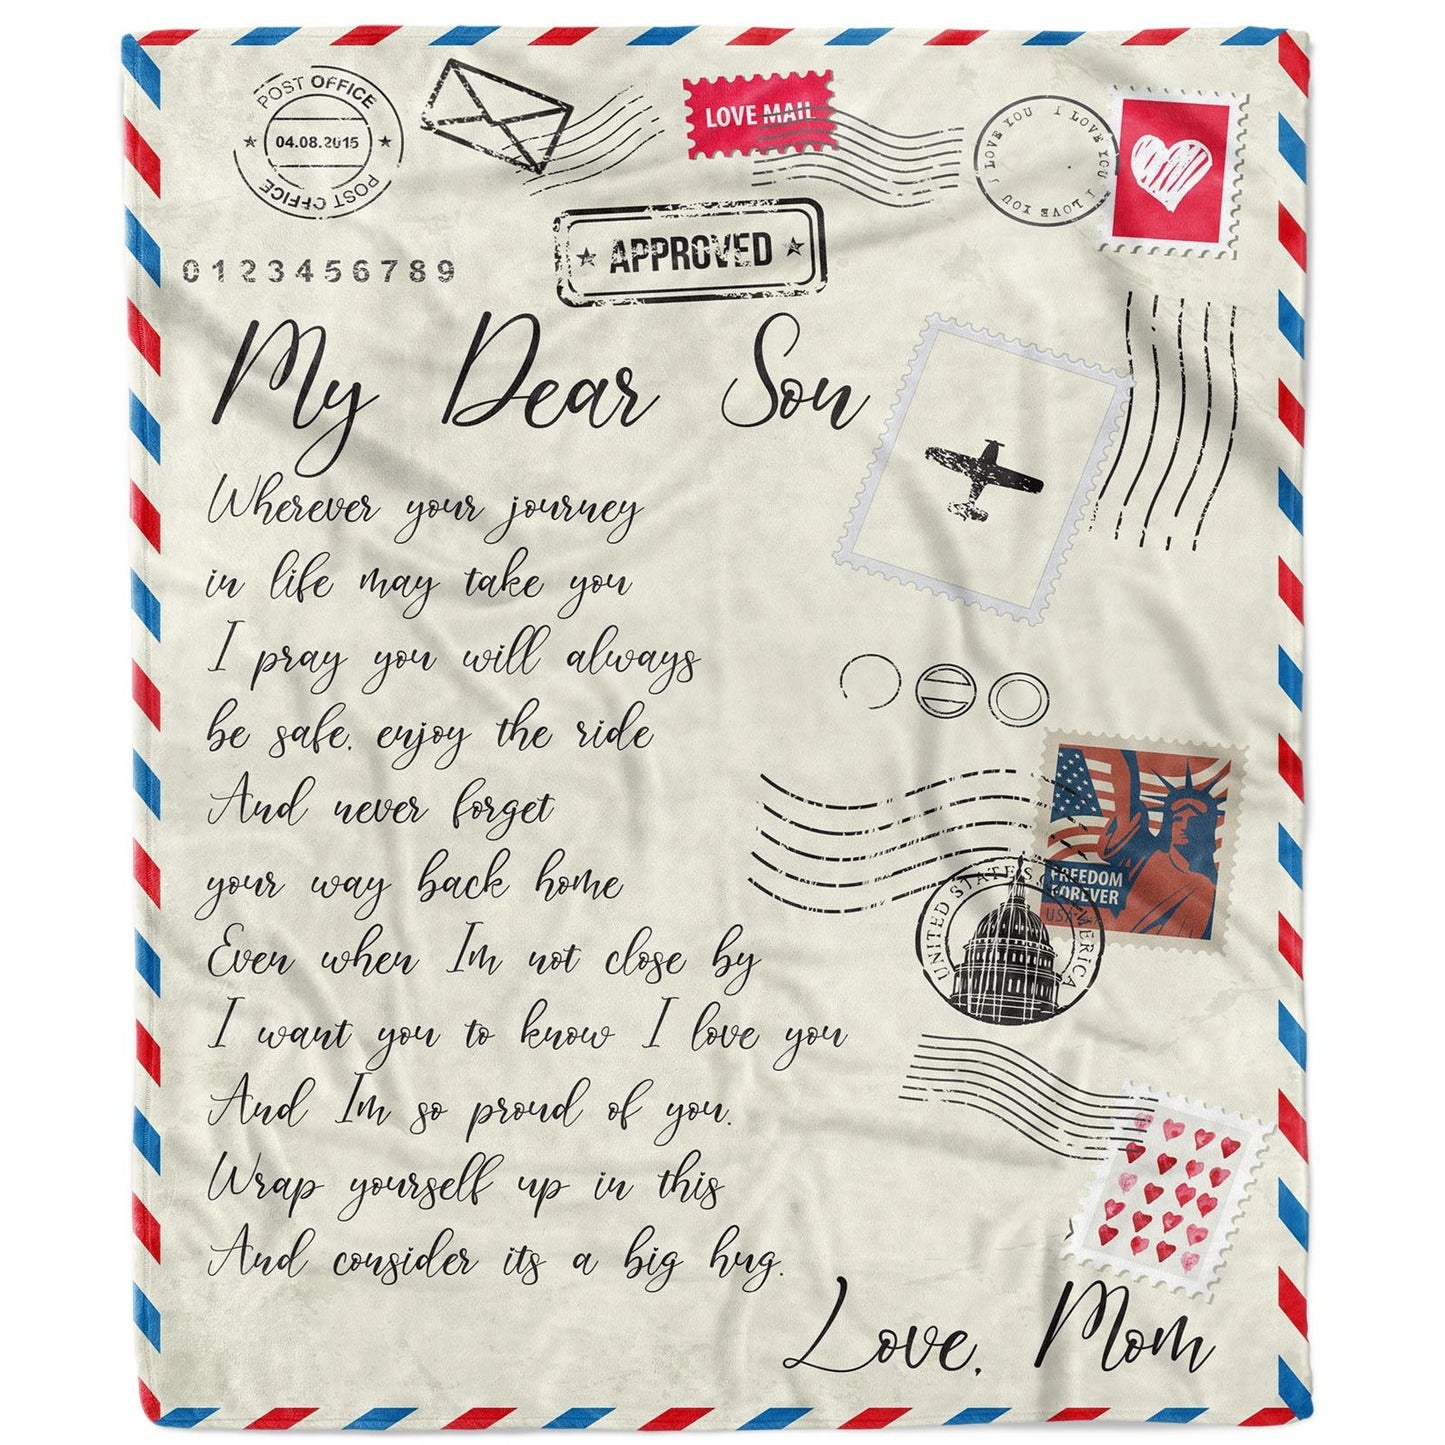 POST OFFICE
04.08.2015
POST OFFICE
LOVE MAIL
I LOVE YOU I LOVE YOU I LOVE YOU I LOVE YOU
APPROVED
0123456789
My Dear Son
Wherever your journey
in life may take you
I pray you will always
be safe, enjoy the ride
And never forget
your way back home
Even when Im not close by
I want you to know I love you
And Im so proud of you.
Wrap yourself up in this
And consider its a big hug.
Love, Mom
FREEDOM
FOREVER
USA
UNITED STATES AMERICA